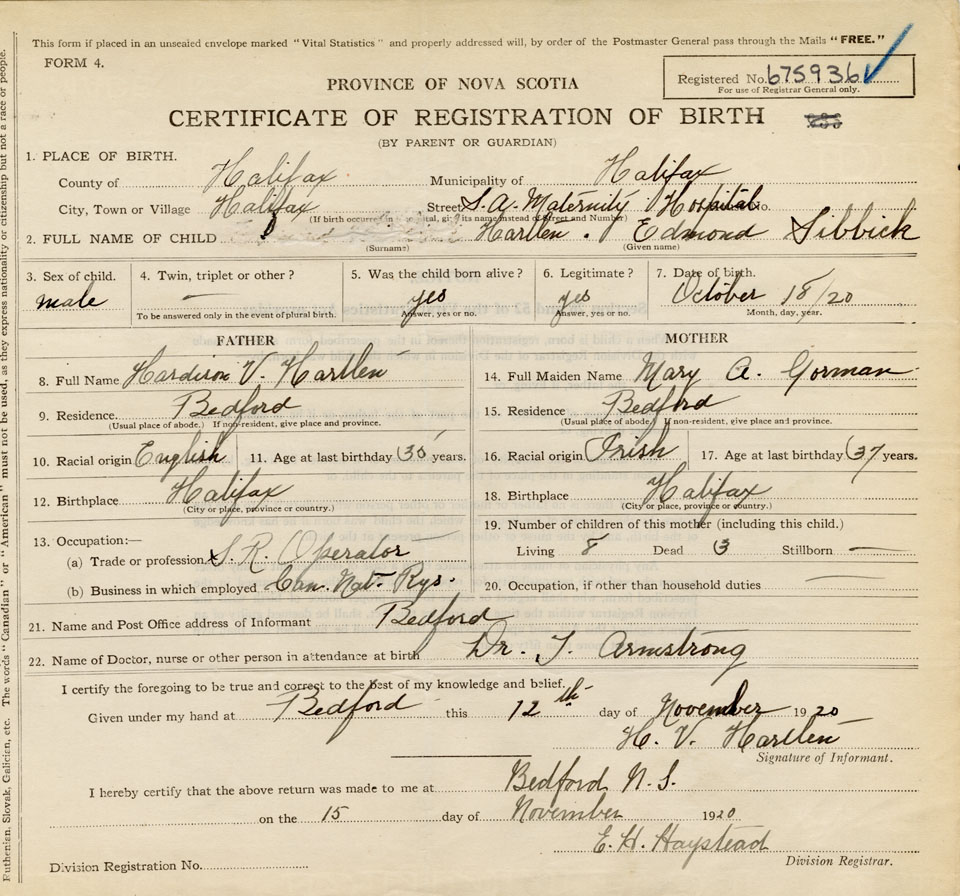 This form if placed in an unsealed envelope marked "Vital Statistics" and properly addressed will, by order of the Postmaster General pass through the Mails "FREE."
FORM 4.
Registered No. 6759361
For use of Registrar General only.
PROVINCE OF NOVA SCOTIA
CERTIFICATE OF REGISTRATION OF BIRTH
(BY PARENT OR GUARDIAN)
1. PLACE OF BIRTH.
County of Halifax Municipality of Halifax
City, Town or Village Halifax Street S. A. Maternity Hospital No.
(If birth occurred in hospital, give its name instead of Street and Number)
2. FULL NAME OF CHILD Hartlen. Edmond Sibbick
(Surname) (Given name)
3. Sex of child. 4. Twin, triplet or other? 5. Was the child born alive? 6. Legitimate? 7. Date of birth.
male — yes yes October 18/20
To be answered only in the event of plural birth. Answer, yes or no. Answer, yes or no. Month, day, year.
FATHER MOTHER
8. Full Name V. Hartlen 14. Full Maiden Name Mary A. Gorman
9. Residence. Bedford 15. Residence Bedford
(Usual place of abode.) If non-resident, give place and province. (Usual place of abode.) If non-resident, give place and province.
10. Racial origin English 11. Age at last birthday (35 years. 16. Racial origin Irish 17. Age at last birthday (37 years.
12. Birthplace Halifax 18. Birthplace Halifax
(City or place, province or country.) (City or place, province or country.)
13. Occupation:— 19. Number of children of this mother (including this child.)
(a) Trade or profession S. R. Operator Living 8 Dead 3 Stillborn —
(b) Business in which employed Can. Nat. Rys. 20. Occupation, if other than household duties —
21. Name and Post Office address of Informant Bedford
22. Name of Doctor, nurse or other person in attendance at birth Dr. J. Armstrong
I certify the foregoing to be true and correct to the best of my knowledge and belief.
Given under my hand at Bedford this 12th day of November 1920
H. V. Hartlen
Signature of Informant.
I hereby certify that the above return was made to me at Bedford N. S.
on the 15 day of November 1920
E. H. Haystead
Division Registrar.
Division Registration No.
Ruthenian, Slovak, Galician, etc. The words "Canadian" or "American" must not be used, as they express nationality or citizenship but not a race or people.